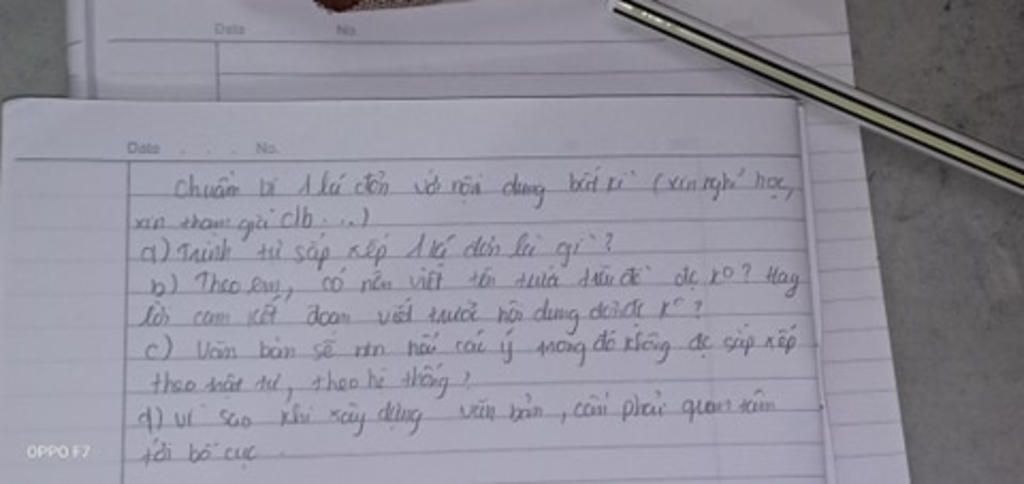 Date No.
Date . . . No.
Chuẩn bị 1 lá đơn với nội dung bất kì (xin nghỉ học,
xin tham gia clb...)
a) Trình tự sắp xếp 1 lá đơn là gì?
b) Theo em, có nên viết tên trước tiêu đề đc k°? Hay
lời cam kết đoan viết trước nội dung đơn đc k°?
c) Văn bản sẽ ntn nếu các ý trong đó không đc sắp xếp
theo trật tự, theo hệ thống?
d) Vì sao khi xây dựng văn bản, cần phải quan tâm
tới bố cục
OPPO F7